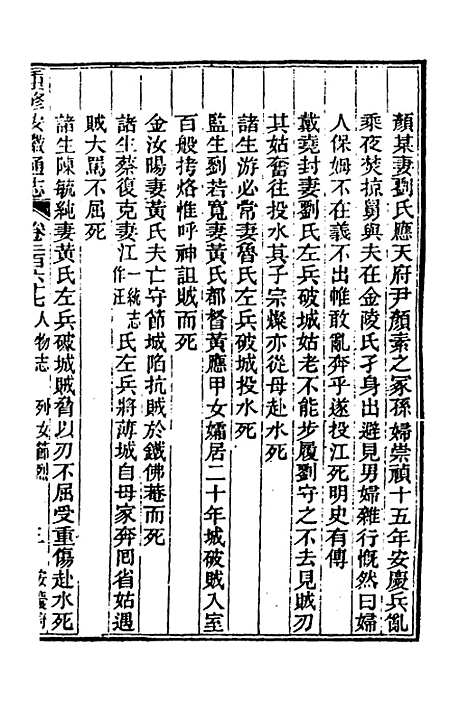 顏某妻劉氏應天府尹顏素之冢孫婦崇禎十五年安慶兵亂
乘夜焚掠舅與夫在金陵氏孑身出避見男婦雜行慨然曰婦
人保姆不在義不出帷敢亂奔乎遂投江死明史有傳
戴堯封妻劉氏左兵破城姑老不能步履劉守之不去見賊刃
其姑奮往投水其子宗燦亦從母赴水死
諸生游必常妻魯氏左兵破城投水死
監生劉若寬妻黃氏都督黃應甲女孀居二十年城破賊入室
百般拷烙惟呼神詛賊而死
金汝暘妻黃氏夫亡守節城陷抗賊於鐵佛菴而死
諸生蔡復克妻江一統志作汪氏左兵將薄城自母家奔囘省姑遇
賊大罵不屈死
諸生陳毓純妻黃氏左兵破城賊脅以刃不屈受重傷赴水死
重修安徽通志 卷二百六七 人物志 列女節烈 三 安慶府